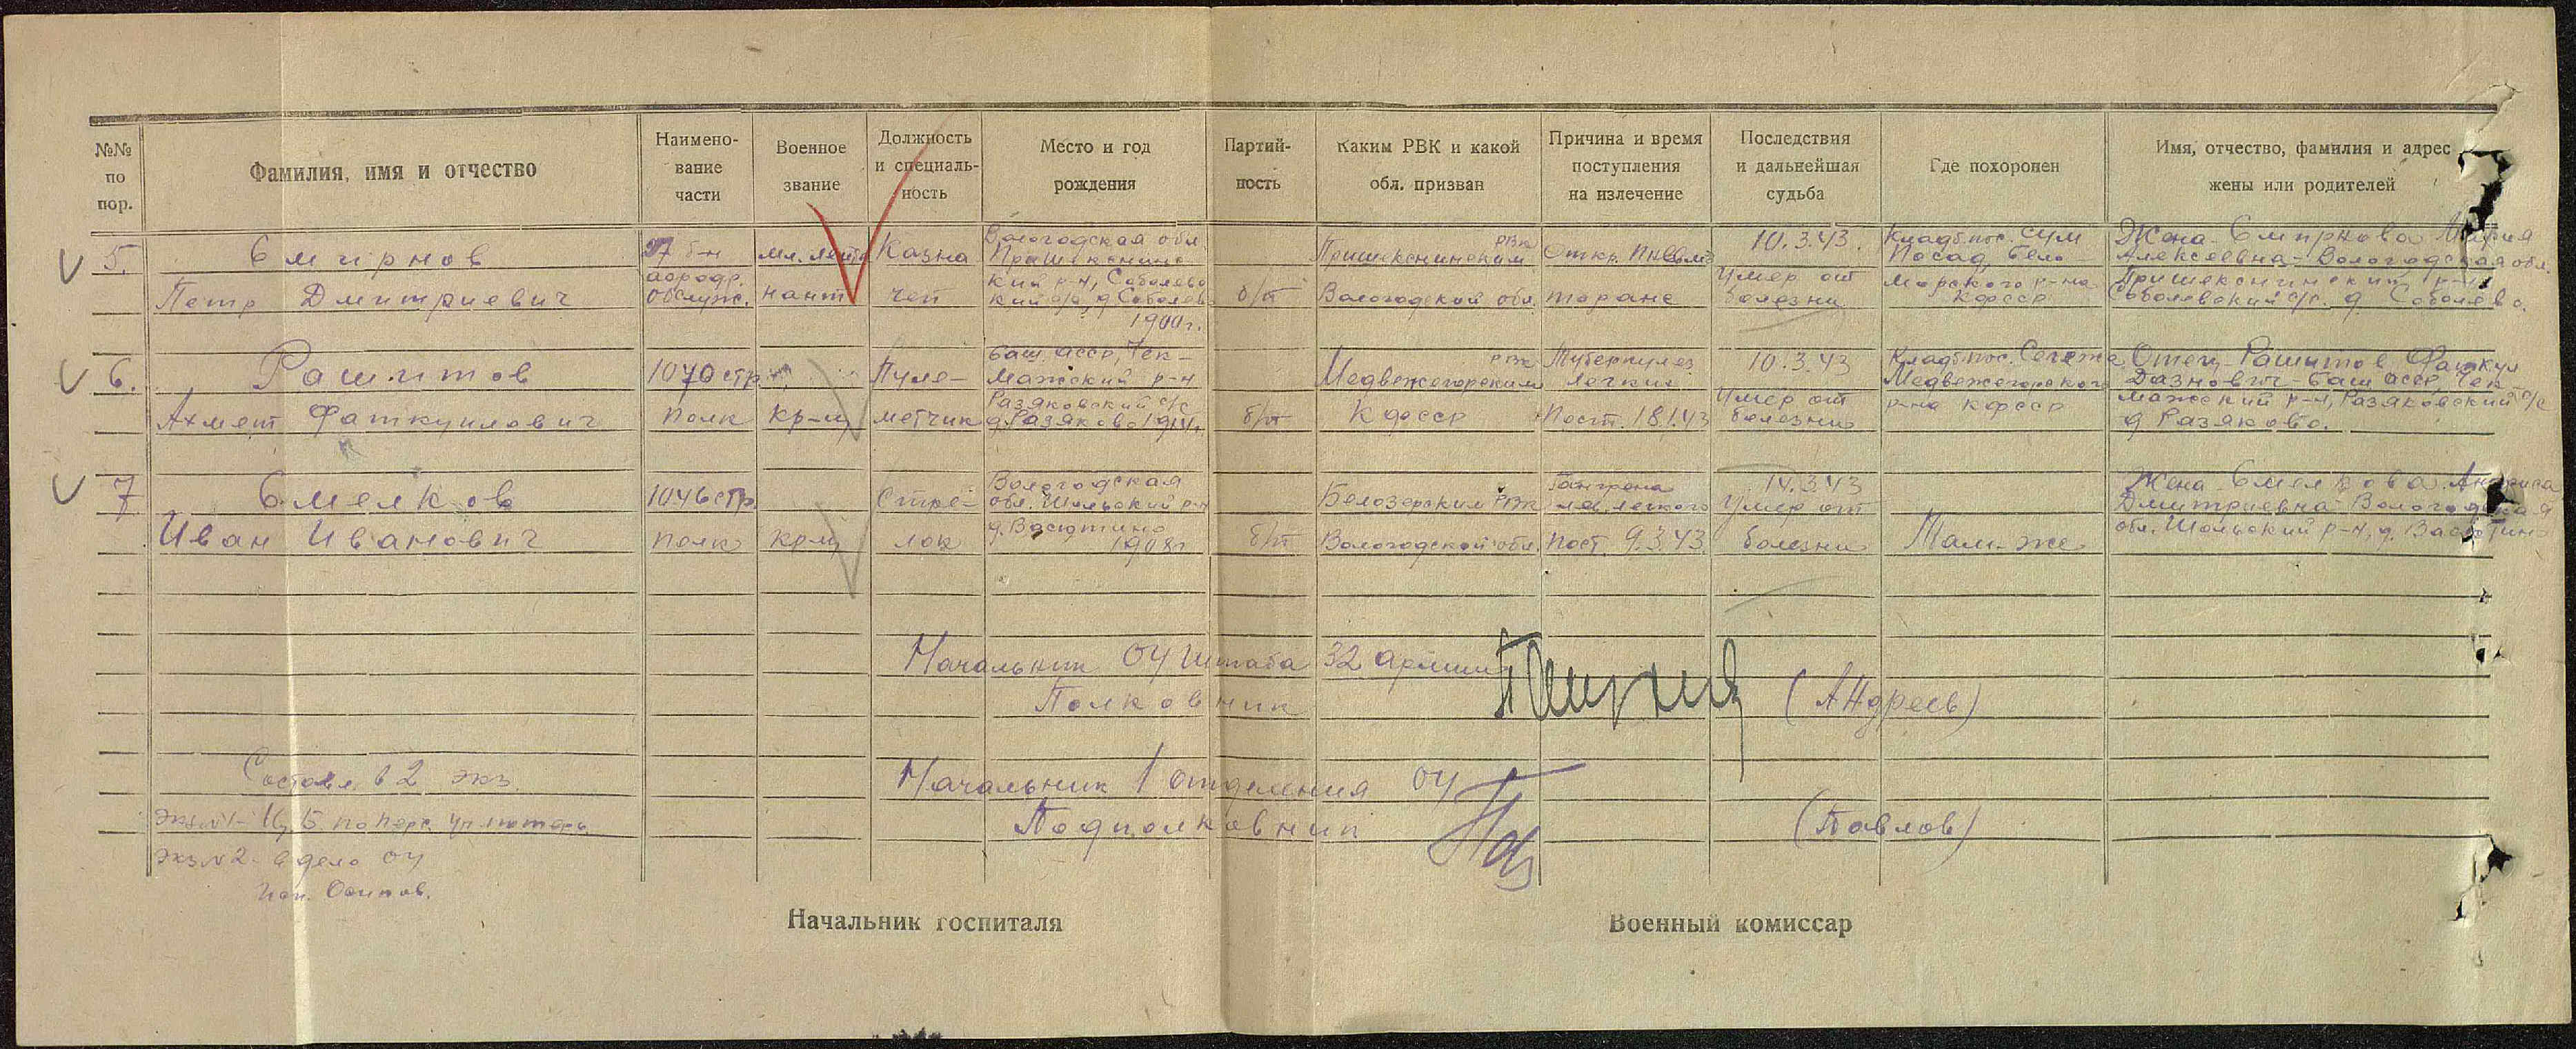 №№ по пор.
Фамилия, имя и отчество
Наимено-
вание
части
Военное
звание
Должность
и специаль-
ность
Место и год
рождения
Партий-
ность
Каким РВК и какой
обл. призван
Причина и время
поступления
на излечение
Последствия
и дальнейшая
судьба
Где похоронен
Имя, отчество, фамилия и адрес
жены или родителей
5.
Смирнов
Петр Дмитриевич
б-н
аэродр.
обслуж.
мл. лейте
нант
Казна
чей
Вологодская обл.
Пришекснинс
кий р-н, Соболевс
кий с/с, д. Соболев
1900 г.
б/п
Пришекснинским РВК
Вологодской обл.
Откр. пневмо
торакс
10.3.43.
Умер от
болезни
Кладб. пос. Сум
Посад, Бело-
морского р-на
КФССР
Жена - Смирнова Мария
Алексеевна - Вологодская обл.
Пришекснинский р-н
Соболевский с/с. д. Соболево.
6.
Рашитов
Ахмет Фаткулович
1070 стр
полк
кр-ц
Пуле-
метчик
Баш. АССР, Чек-
магский р-н
Разяковский с/с
д. Разяково
б/п
Медвежегорским РВК
КФССР
Туберкулез
легких
Пост. 18.1.43
10.3.43
Умер от
болезни
Кладб. пос. Сегежа
Медвежегорского
р-на КФССР
Отец Рашитов Фаткул
Баш АССР, Чек
магский р-н, Разяковский с/с
д. Разяково.
7
Смелков
Иван Иванович
1046 стр
полк
кр-ц
Стре-
лок
Вологодская
обл. Шольский р-н
д. Васютино
1908 г
б/п
Белозерским РВК
Вологодской обл.
Гангрена
легкого
пост. 9.3.43
Умер от
болезни
Там-же
Жена - Смелкова
Дмитриевна Вологодская
обл. Шольский р-н, д. Васютино
Начальник ОУ штаба 32 армии
Полковник
(Андреев)
Составл. в 2 экз.
Начальник 1 отделения ОУ
Подполковник
(Павлов)
Экз № 2 - в дело ОУ
Исп. Осипов.
Начальник госпиталя
Военный комиссар